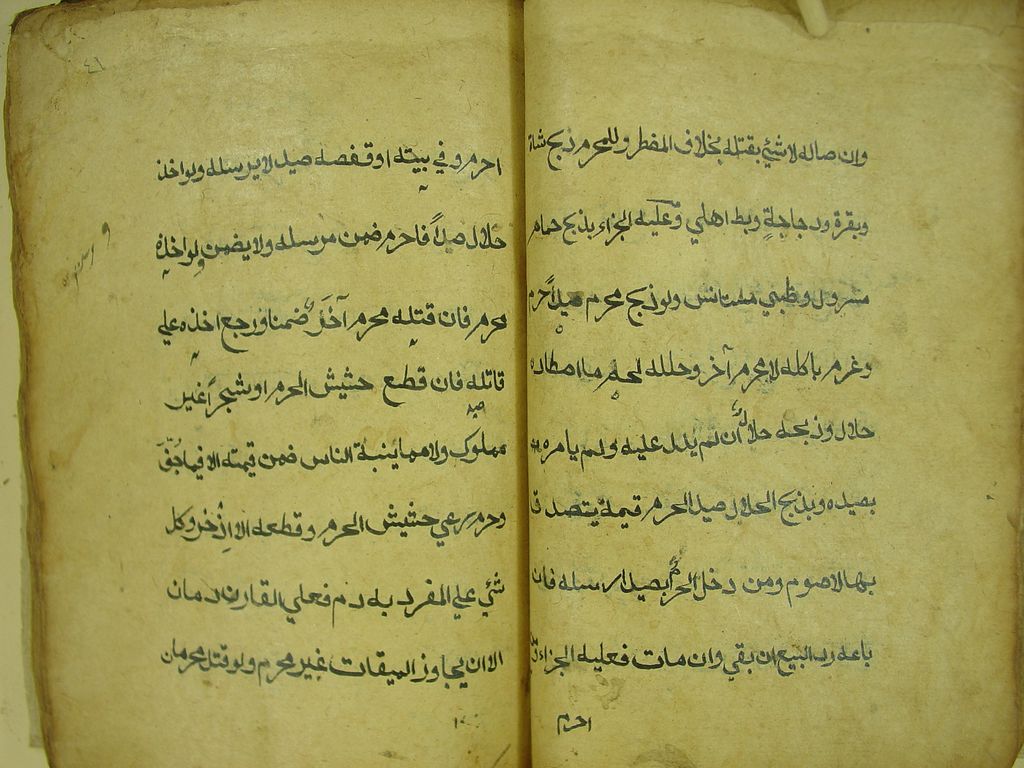 وان صاله لا شئ بقتله بخلاف المضطر وللمحرم ذبح شاة
وبقرة ودجاجة وبط اهلي وعليه الجزاء بذبح حمام
مسرول وظبي مستانس ولو ذبح محرم صيداً حرم
وغرم باكله لا محرم آخر وحل له لحم ما اصطاده
حلال وذبحه حلال ان لم يدل عليه ولم يامره
بصيده وبذبح الحلال صيد الحرم قيمة يتصدق
بها لا صوم ومن دخل الحرم بصيد ارسله فان
باعه رد البيع ان بقي وان مات فعليه الجزاء
احرم
٤١
احرم وفي بيته او قفصه صيد لا يرسله ولو اخذ
حلال صيداً فاحرم ضمن مرسله ولا يضمن لو اخذه
محرم فان قتله محرم آخر ضمنا ورجع اخذه علي
قاتله فان قطع حشيش الحرم او شجرا غير
مملوك ولا مما ينبته الناس ضمن قيمته الا فيما جف
وحرم رعي حشيش الحرم وقطعه الا الاذخر وكل
شئ علي المفرد به دم فعلي القارن دمان
الا ان يجاوز الميقات غير محرم ولو قتل محرمان